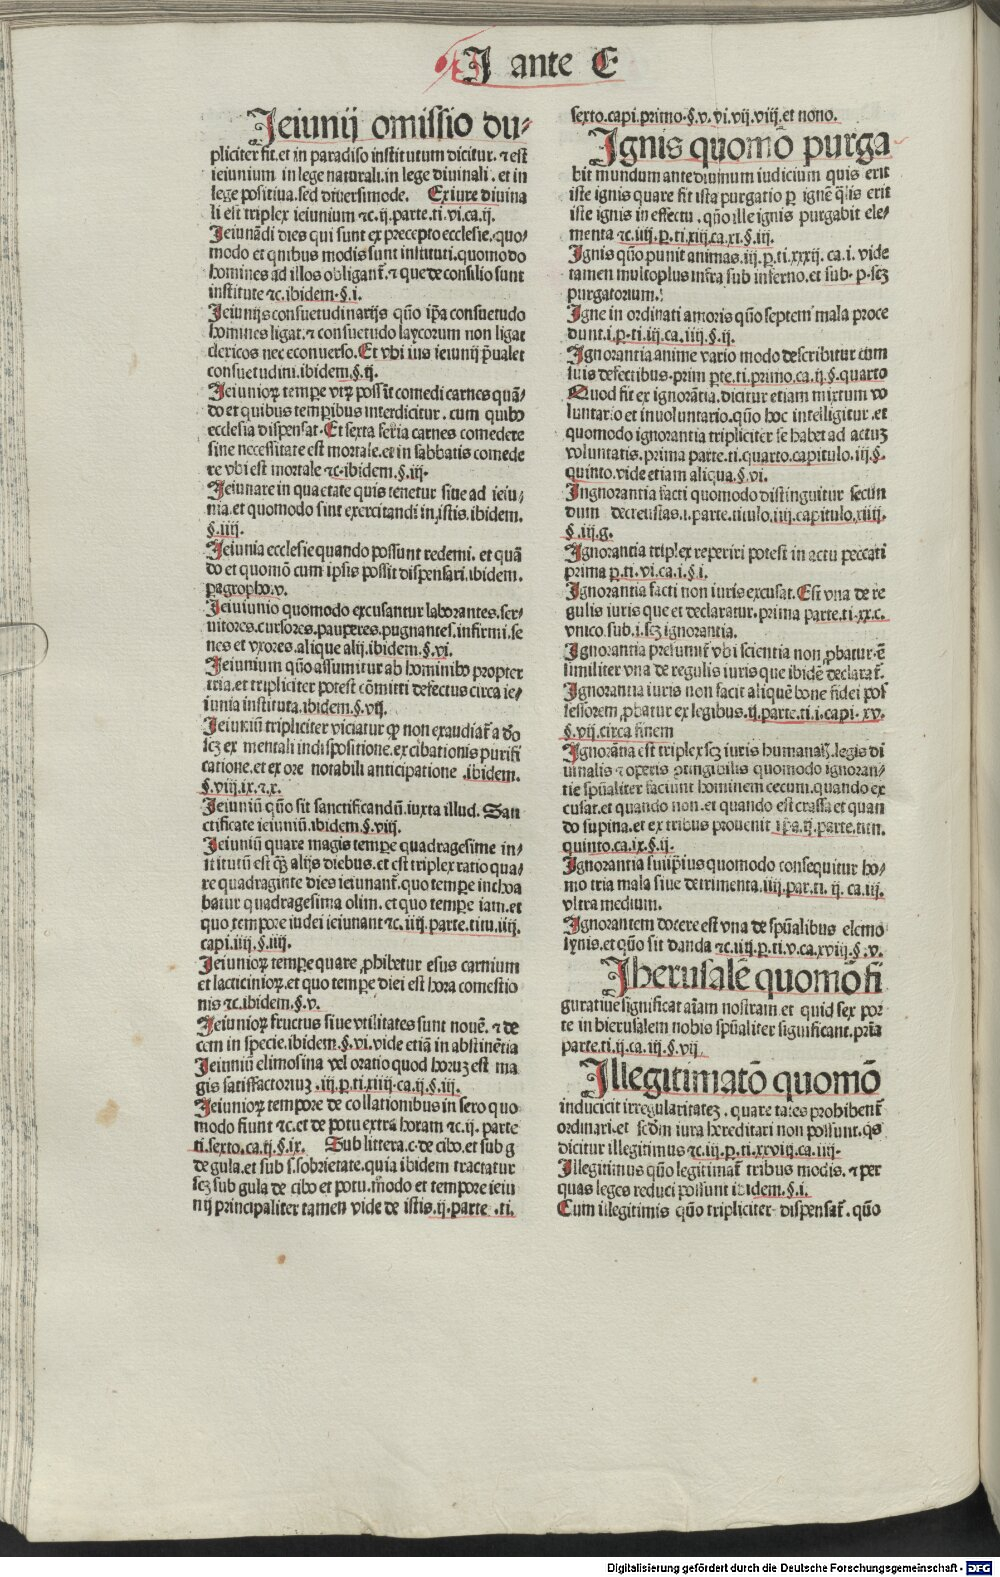 J ante E
Jeiunij omissio du⸗
pliciter fit.et in paradiso institutum dicitur. ⁊ est
ieiunium in lege naturali.in lege diuinali. et in
lege positiua.sed diuersimode. Ex iure diuina
li est triplex ieiunium ⁊c.ij.parte.ti.vi.ca.ij.
Jeiunãdi dies qui sunt ex precepto ecclesie.quo⸗
modo et quibus modis sunt instituti.quomodo
homines ad illos obligant̃.⁊ que de consilio sunt
institute ⁊c.ibidem.§.i.
Jeiunijs consuetudinarijs qũo ip̃a consuetudo
homines ligat.⁊ consuetudo laycorum non ligat
clericos nec econuerso.Et vbi ius ieiunij p̃ualet
consuetudini.ibidem.§.ij.
Jeiunioꝝ tempe vtꝝ possit comedi carnes quã⸗
do et quibus tempibus interdicitur. cum quibꝰ
ecclesia dispensat.Et sexta feria carnes comedere
sine necessitate est mortale.et in sabbatis comede
re vbi est mortale ⁊c.ibidem.§.iij.
Jeiunare in qua etate quis tenetur siue ad ieiu⸗
nia.et quomodo sint exercitandi in istis.ibidem.
§.iiij.
Jeiunia ecclesie quando possunt redemi. et quã
do et quomõ cum ipsis possit dispensari.ibidem.
pagropho.v.
Jeiuiunio quomodo excusantur laborantes.ser⸗
uitores.cursores.pauperes.pugnantes.infirmi.se
nes et vxores.alique alij.ibidem.§.vi.
Jeiunium qũo assumitur ab hominibꝰ propter
tria.et tripliciter potest cõmitti defectus circa ie⸗
iunia instituta.ibidem.§.vij.
Jeiuniũ tripliciter viciatur ꝙ non exaudiat̃ a dõ
scꝫ ex mentali indispositione.ex cibationis purifi
catione.et ex ore notabili anticipatione .ibidem.
§.viij.ix.⁊.x.
Jeiuniũ qũo sit sanctificandũ.iuxta illud. San
ctificate ieiuniũ.ibidem.§.viij.
Jeiuniũ quare magis tempe quadragesime in⸗
stitutũ est qƷ alijs diebus.et est triplex ratio qua⸗
re quadraginte dies ieiunant̃.quo tempe inchoa
batur quadragesima olim. et quo tempe iam.et
quo tempore iudei ieiunant ⁊c.iiij.parte.titu.iiij.
capi.iiij.§.iiij.
Jeiunioꝝ tempe quare ꝓhibetur esus carnium
et lacticinioꝝ.et quo tempe diei est hora comestio
nis ⁊c.ibidem.§.v.
Jeiunioꝝ fructus siue vtilitates sunt nouẽ. ⁊ de
cem in specie.ibidem.§.vi.vide etiã in abstinẽtia
Jeiuniũ elimosina vel oratio quod horuꝫ est ma
gis satisfactoriuꝫ .iij.p.ti.xiiij.ca.ij.§.iij.
Jeiunioꝝ tempore de collationibus in sero quo
modo fiunt ⁊c.et de potu extra horam ⁊c.ij. parte
ti.sexto.ca.ij.§.ix. Sub littera.c.de cibo.et sub g
de gula.et sub s.sobrietate.quia ibidem tractatur
scꝫ sub gula de cibo et potu.modo et tempore ieiu
nij principaliter tamen vide de istis.ij.parte .ti.
sexto.capi.primo.§.v.vi.vij.viij.et nono.
Jgnis quomõ purga
bit mundum ante diuinum iudicium quis erit
iste ignis quare fit ista purgatio p ignẽ q̃lis erit
iste ignis in effectu. qũo ille ignis purgabit ele⸗
menta ⁊c.iiij.p.ti.xiij.ca.xi.§.iij.
Jgnis qũo punit animas.iij.p.ti.xxxij. ca.i. vide
tamen multoplus infra sub inferno.et sub. p.scꝫ
purgatorium.
Jgne in ordinati amoris qũo septem mala proce
dunt.i.p.ti.iij.ca.iiij.§.ij.
Jgnorantia anime vario modo describitur cum
suis defectibus.prim pte.ti.primo.ca.ij.§.quarto
Quod fit ex ignorãtia.dicitur etiam mixtum vo
luntario et inuoluntario.qũo hoc intelligitur.et
quomodo ignorantia tripliciter se habet ad actuꝫ
voluntatis.prima parte.ti.quarto.capitulo.iij.§.
quinto.vide etiam aliqua.§.vi.
Jngnorantia facti quomodo distinguitur secun
dum decretistas.i.parte.titulo.iiij.capitulo.xiiij.
§.iij.g.
Jgnorantia triplex reperiri potest in actu peccati
prima p.ti.vi.ca.i.§.i.
Jgnorantia facti non iuris excusat.Est vna de re
gulis iuris que et declaratur.prima parte.ti.xx.c.
vnico.sub.i.scꝫ ignorantia.
Jgnorantia presumit̃ vbi scientia non ꝓbatur.ẽ
similiter vna de regulis iuris que ibidẽ declarat̃.
Jgnorantia iuris non facit aliquẽ bone fidei pos
sessorem ꝓbatur ex legibus.ij.parte.ti.i.capi.xv.
§.vij.circa finem
Jgnorãtia est triplex scꝫ iuris humanaƷ.legis di
uinalis ⁊ operis ptingibilis quomodo ignoran⸗
tie spũaliter faciunt hominem cecum.quando ex
cusat.et quando non.et quando est crassa et quan
do supina.et ex tribus prouenit ip̃a.ij.parte.titu.
quinto.ca.ix.§.ij.
Jgnorantia suiip̃ius quomodo consequitur ho⸗
mo tria mala siue detrimenta.iiij.par.ti. ij. ca.iij.
vltra medium.
Jgnorantem docere est vna de spũalibus elemo
synis.et qũo sit danda ⁊c.iiij.p.ti.v.ca.xviij.§.v.
Jherusalẽ quomõ fi
guratiue significat aĩam nostram.et quid sex por
te in hierusalem nobis spũaliter significant.prĩa
parte.ti.ij.ca.iij.§.vij
Jllegitimatõ quomõ
inducicit irregularitateꝫ. quare tales prohibent̃
ordinari.et scdm iura hereditari non possunt.qs
dicitur illegitimus ⁊c.iij.p.ti.xxviij.ca.iiij.
Jllegitimus qũo legitimat̃ tribus modis. ⁊ per
quas leges reduci possunt ibidem.§.i.
Cum illegitimis qũo tripliciter dispensat̃. qũo
Digitalisierung gefördert durch die Deutsche Forschungsgemeinschaft - DFG